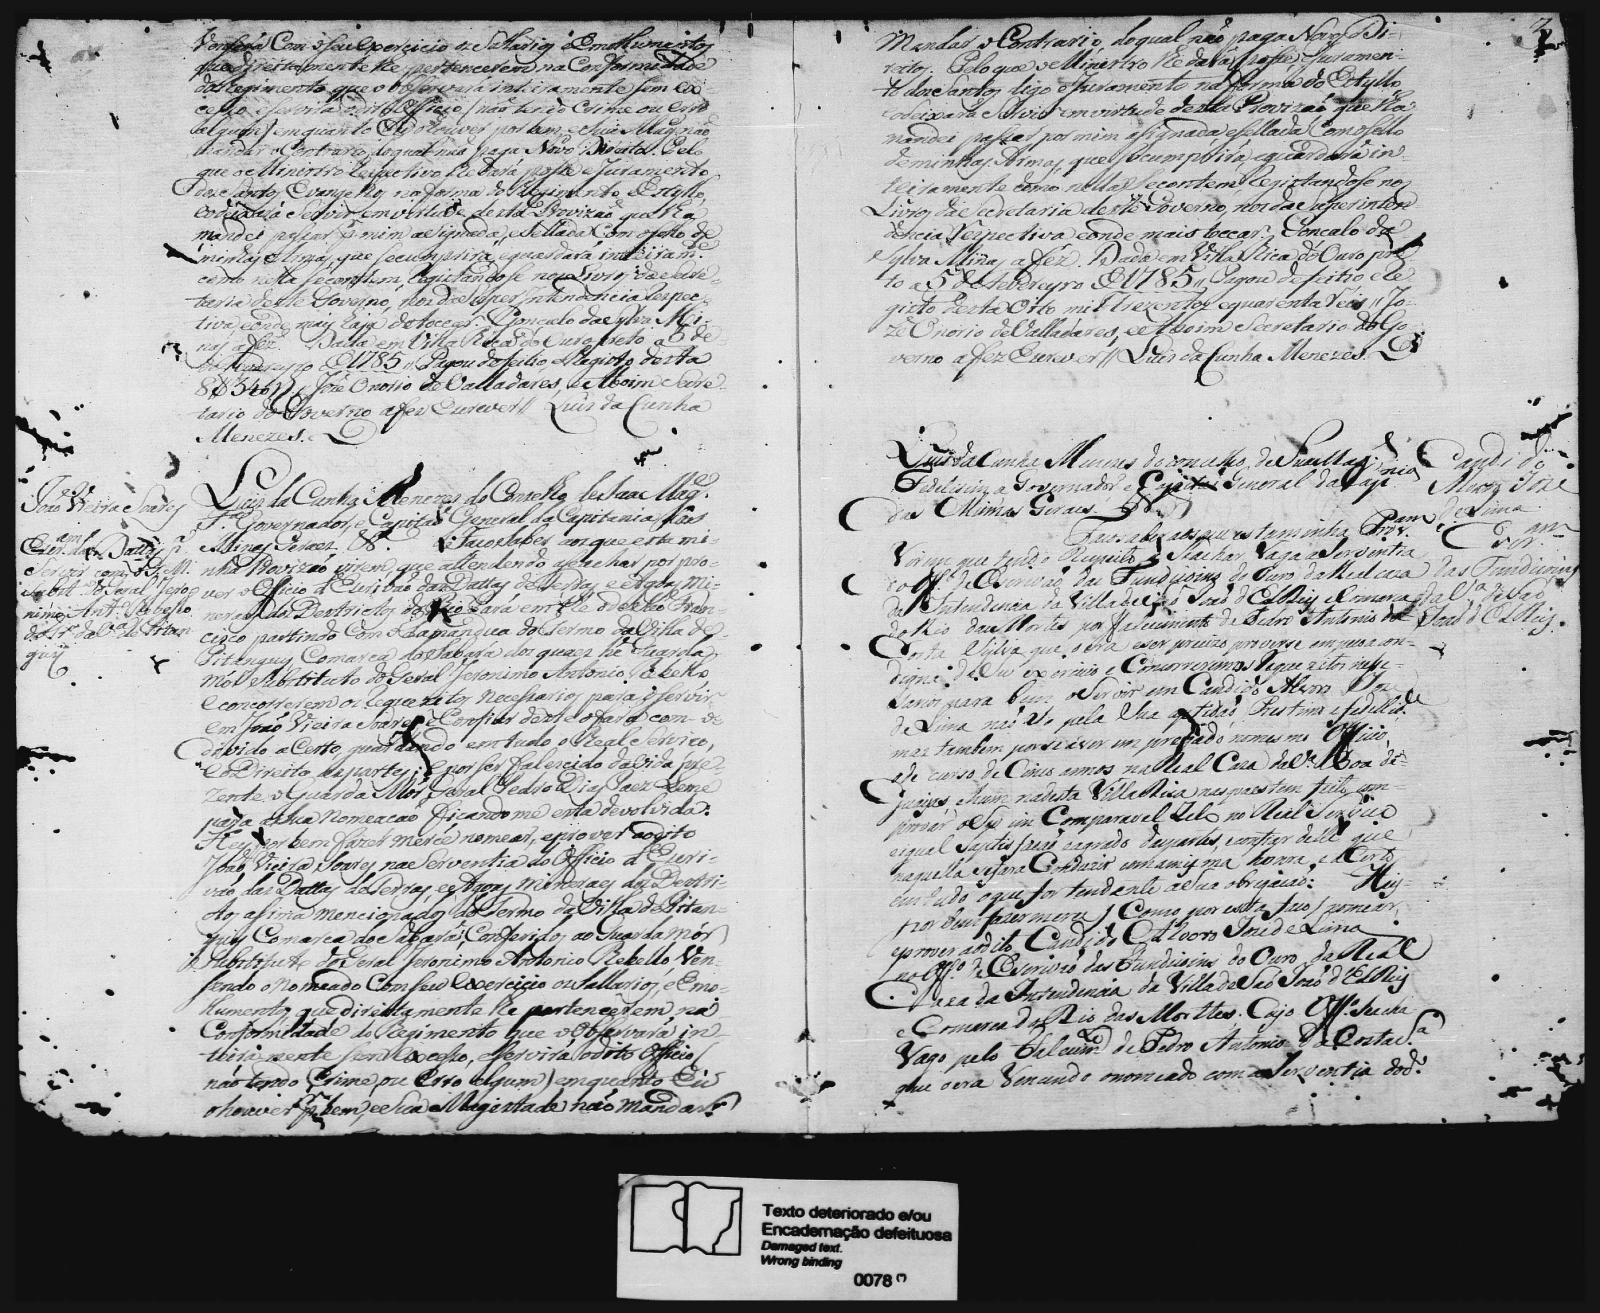 Vencerá Com o seu exercicio os Salarios e Emolumentos
que direitamente lhe pertencerem na Conformidade
do Regimento que observará inteiramente sem ex
cesso e servirá o dito Officio (não tendo Crime ou erro
algum) emquanto Eu o houver por bem, e Sua Mag. não
mandar o Contrario, do qual não paga Novo Direito. Pelo
que o Ministro Respectivo lhe dará posse e Juramento
dos Santos Evangelhos na forma do Regimento e Estyllo
e o deixará Servir em virtude desta Provizão que lhe
mandei passar p. mim asignada, e Sellada Com o sello de
minhas Armas, que se cumprirá, e guardará inteiram.te
como nella se contem, Registandose nos Livros da Secre
taria deste Governo, nos da Superintendencia Respec
tiva, e onde mais haja de tocar. Gonçalo da Sylva Mi
nas a fez Dada em Villa Rica do Ouro preto a 5 de
Fevereyro de 1785 Pagou de feitio, e Registo desta
8$346 // José Onorio de Valladares, e Aboim Secre
tario do Governo a fez Escrever // Luis da Cunha
Menezes.
João Vieira Soares
Escr.am das Dattas p.
Servir com o G. M.
Substt.o do Geral Jero
nimo Ant.o Rebello
do Tr.o da V.a de Pitan
guy
Luis da Cunha Menezes do Conselho de Sua Mag.
F. Governador, e Capitão General da Capitania das
Minas Geraes &. Faço saber aos que esta mi
nha Provizão virem, que attendendo a se achar por pro
ver o Officio d'Escrivão das Dattas de terras, e Agoas mi
neraes dos Destrictos do Rio Pará em the o de São Fran
cisco partindo Com o Bamanhua do Termo da Villa de
Pitanguy Comarca do Sabará dos quaes hé Guarda
Mór Substituto do Geral Jeronimo Antonio Rebello
e concorrerem os requezitos necessarios para o servir
em João Vieira Soares e Confiar deste o fará com o de
divido acerto, guardando em tudo o Real Serviço,
e o Direito as partes: E por ser falecido da vida prez
zente o Guarda Mór Geral Pedro Dias Paez Leme
para a sua Nomeação ficandome esta devolvida:
Hey por bem fazer mercê nomear, e prover ao dito
João Vieira Soares na Serventia do Officio d'Escri
vão das Dattas de terras, e Agoas Mineraes dos Destri
ctos asima mencionados do Termo da Villa de Pitan
guy Comarca do Sabará, Conferidos ao Guarda Mór
Substituto do Geral Jeronimo Antonio Rebello, Ven
sendo o nomeado Com seu exercicio os Sallarios, e Emo
lumentos que direitamente lhe pertencerem na
Conformidade do Regimento que o Observará in
teiramente sem excesso, e servirá o dito Officio (
não tendo Crime, ou Erro algum) emquanto Eu
o houver p. bem, e Sua Magestade não mandar o
Mandar o Contrario, do qual não paga Novos Di
reitos. Pelo que o Ministro lhe dará posse e Juramen
to dos Santos digo e Juramento na forma do Estyllo
e o deixará Servir em virtude desta Provizão que lhe
mandei passar por mim asignada, e sellada Com o sello
de minhas Armas, que se cumprirá, e guardará in
teiramente como nella se contem Registandose nos
Livros da Secretaria deste Governo, nos da Superinten
dencia Respectiva e onde mais tocar. Goncalo da
Sylva Minas a fez. Dada em Villa Rica do Ouro pre
to a 5 de Fevereyro de 1785 // Pagou de feitio e Re
gisto desta Oito mil trezentos e quarenta e seis // Jo
zé Onorio de Valladares, e Aboim Secretario do Go
verno a fez Escrever // Luis da Cunha Menezes.
Candido
Alvres José
de Lima
Escr.am
das Fundiçoins
da V.a de São
João d'El Rey.
Luis da Cunha Menezes do conselho de Sua Mag.
Fidelissima Governador e Capitão General da Capi
das Minas Geraes. &.
Faço saber aos que esta minha Prov.am
Virem que tendo Respeito a se achar Vaga a Serventia
do Off.o de Escrivão das Fundiçoins do Ouro da Real caza
da Intendencia da Villa de São João d'El Rey e Comarca
do Rio das Mortes por falecimento de Pedro Antonio da
Costa e Sylva que o era e ser precizo proverse em pessoa
digna de seu exercicio e Concorrerem os Requezitos nesse
sarios para bem o Servir em Candido Alvres José
de Lima não só pela sua aptidão, Prestimo e fidelid.e
mas também por se achar empregado no mesmo Officio
a de curso de Cinco annos na Real Caza da V.a Boa de
Guayas, e hum nadesta Villa Rica nas quaes tem feito com
provar o seu incomparavel Zelo no Real Serviço
e igual Satisfação eagrado das partes, confiar dele que
naquella se fara Conduzir com a mesma honra, e Acerto
em tudo o que for tendente a sua obrigação: Hey
por bem fazer merce (Como por esta faço) nomear,
e prover ao dito Candido Alvres José de Lima
no Off.o de Escrivão das Fundiçoins do Ouro da Real
Caza da Intendencia da Villa de São João d'El Rey
e Comarca do Rio das Morttes. Cujo Off.o se acha
Vago pelo falecim.to de Pedro Antonio da Costa S.a
que o era Vencendo o nomeado com a Serventia do d.o
Texto deteriorado e/ou
Encadernação defeituosa
Damaged text.
Wrong binding
0078 (*)